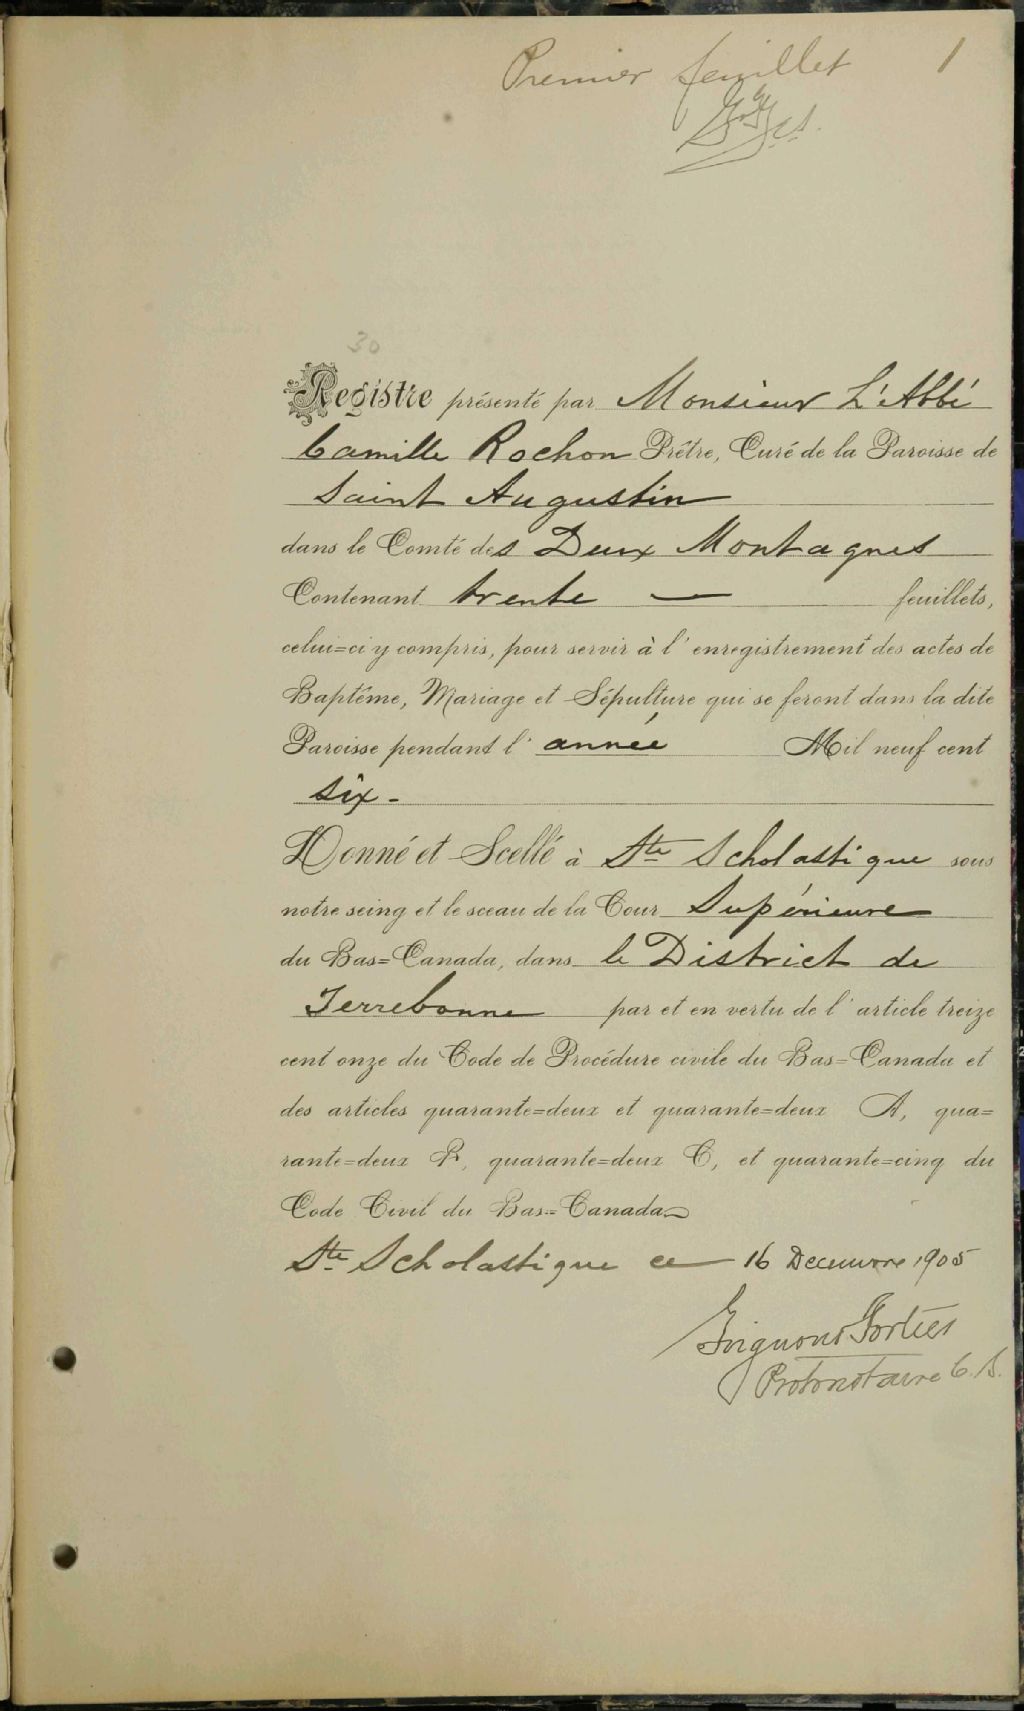 Premier feuillet 1
30
Registre présenté par Monsieur L'Abbé
Camille Rochon Prêtre, Curé de la Paroisse de
Saint Augustin
dans le Comté des Deux Montagnes
Contenant trente — feuillets,
celui=ci y compris, pour servir à l'enregistrement des actes de
Baptême, Mariage et Sépulture qui se feront dans la dite
Paroisse pendant l'année Mil neuf cent
six -
Donné et Scellé à Ste Scholastique sous
notre seing et le sceau de la Cour Supérieure
du Bas=Canada, dans le District de
Terrebonne par et en vertu de l'article treize
cent onze du Code de Procédure civile du Bas=Canada et
des articles quarante=deux et quarante=deux A, qua=
rante=deux B, quarante=deux C, et quarante=cinq du
Code Civil du Bas=Canada
Ste Scholastique ce 16 Decembre 1905
Grignon & Fortier
Protonotaire C. S.